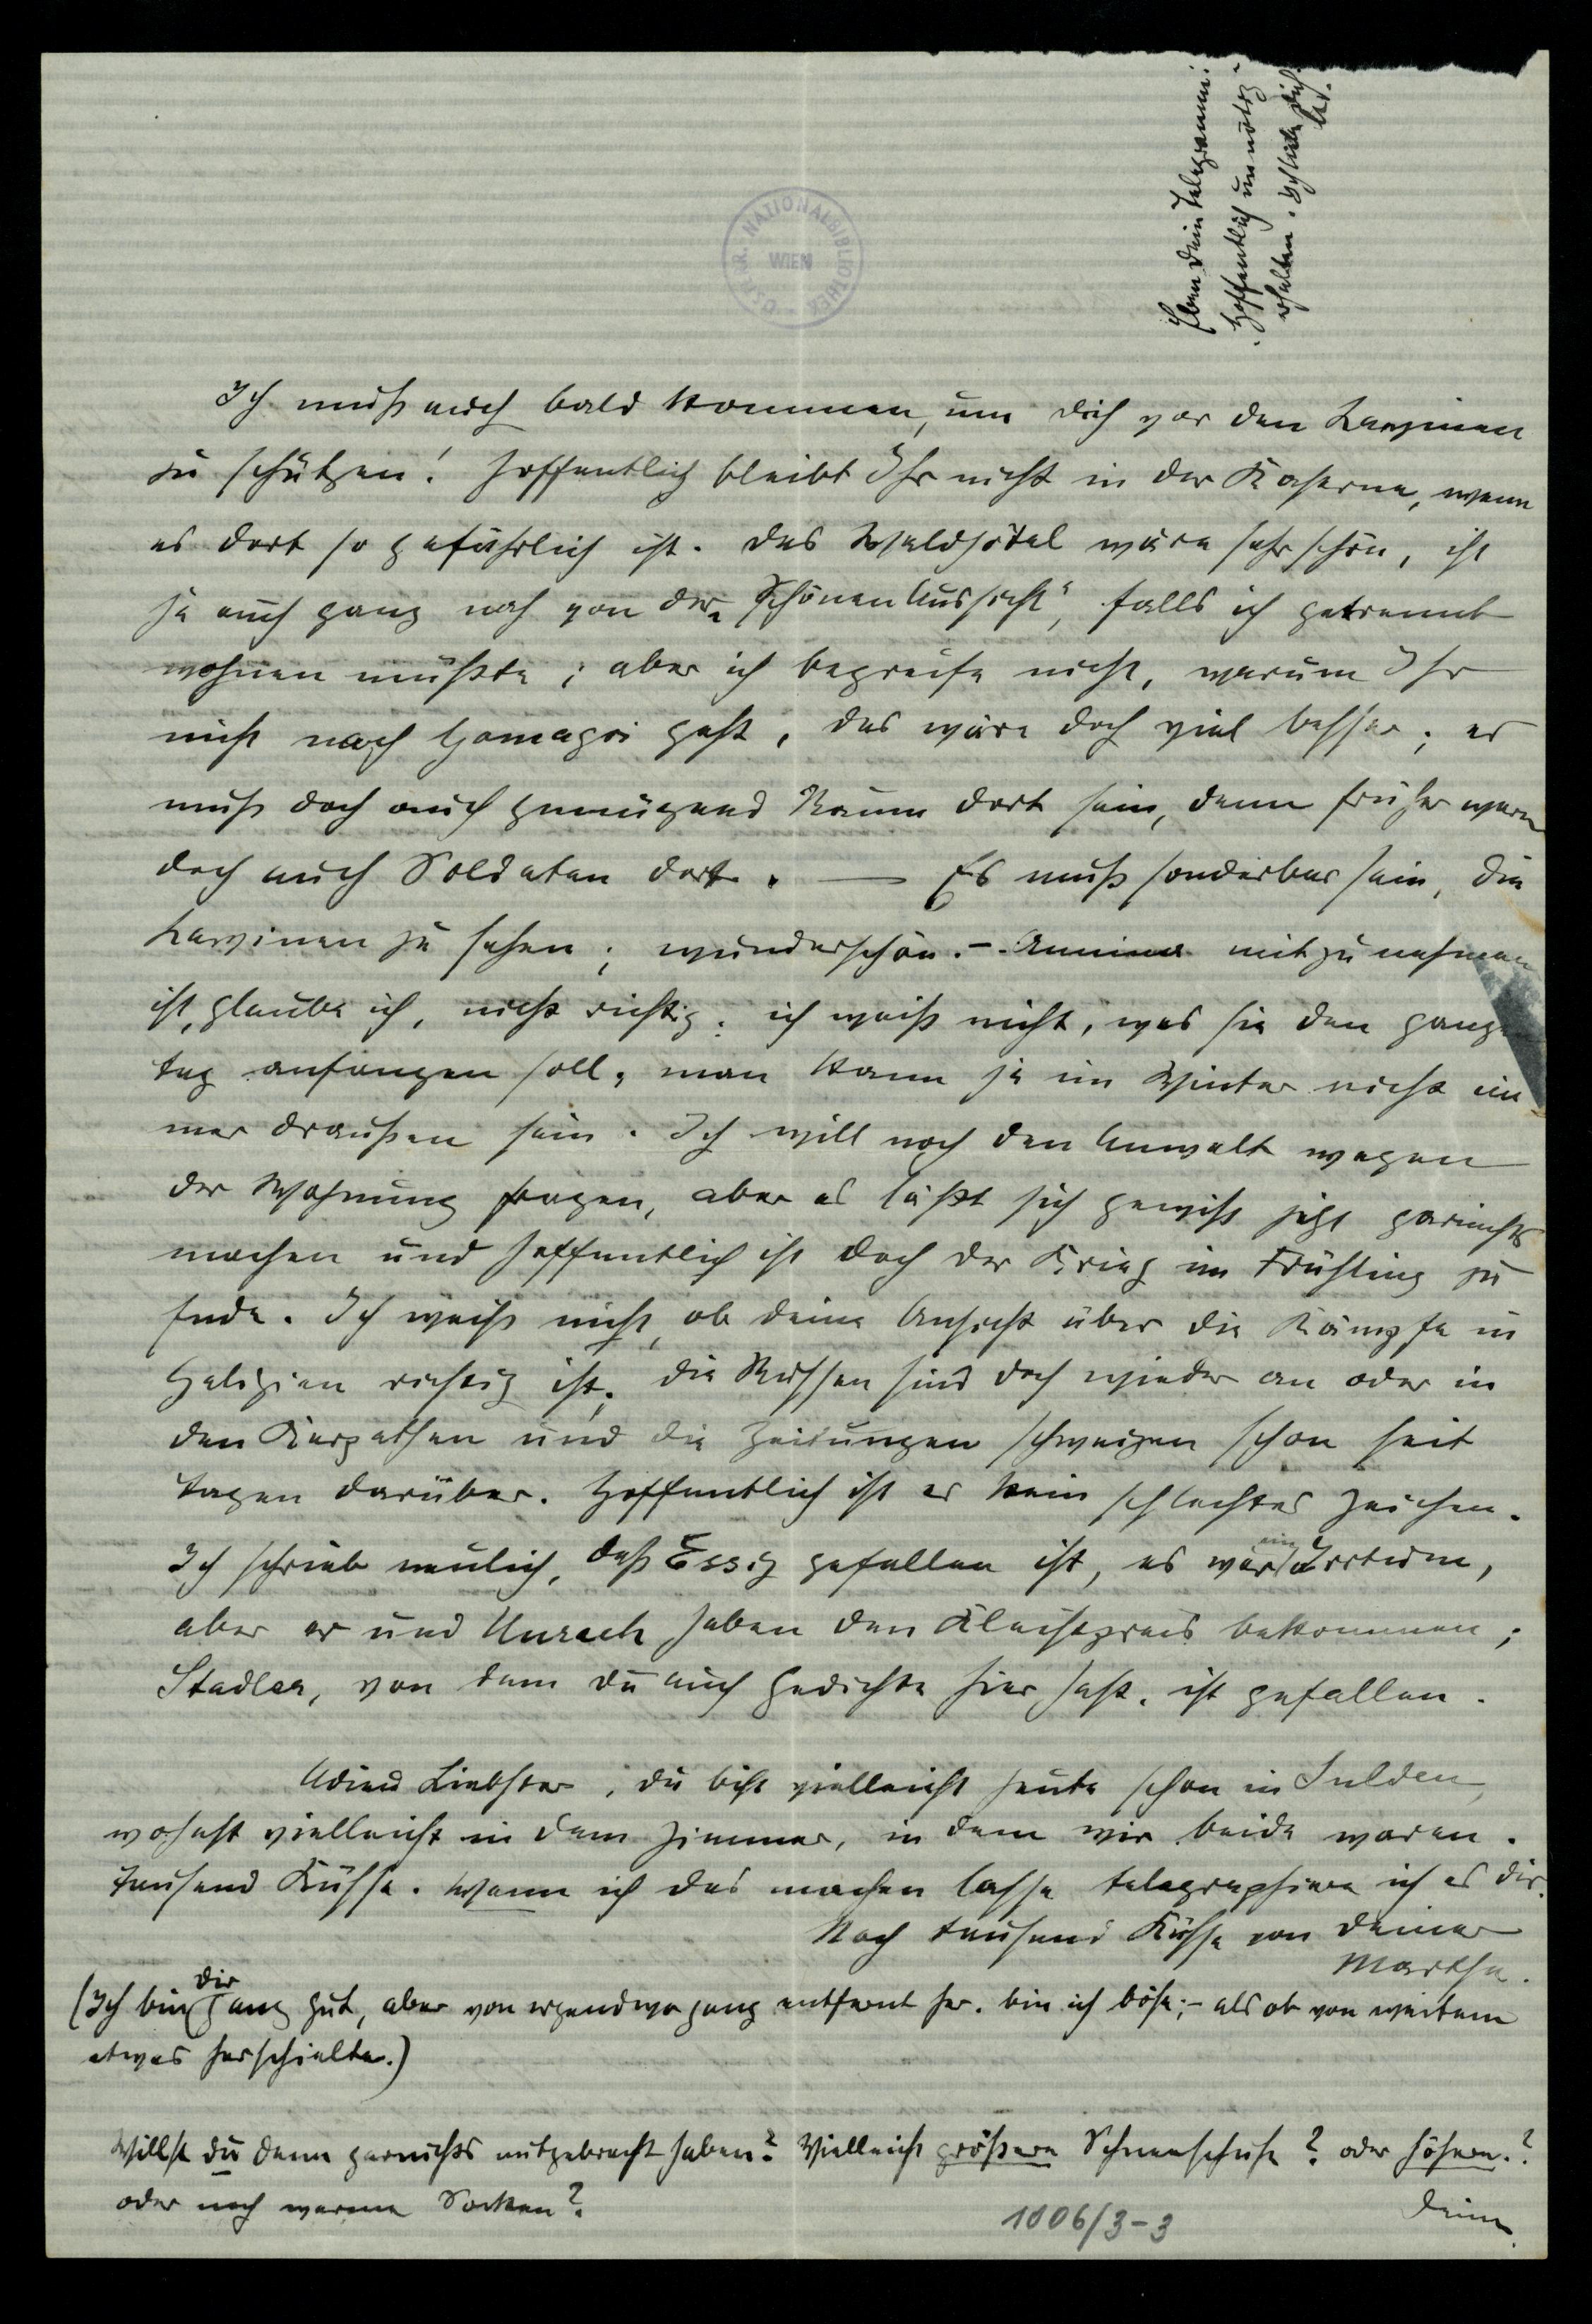 Eben dein Telegramm:
Hoffentlich unnötig
erhalten. Ich liebe dich.
Ich muß auch bald kommen, um dich vor den Lawinen
zu schützen! Hoffentlich bleibt Ihr nicht in der Kaserne, wenn
es dort so gefährlich ist. Das Waldhôtel wäre sehr schön, ist
ja auch ganz nah von der „Schönen Aussicht", falls ich getrennt
wohnen müßte; aber ich begreife nicht, warum Ihr
nicht nach Gomagoi geht, das wäre doch viel besser; es
muß doch auch genügend Raum dort sein, denn früher waren
doch auch Soldaten dort. — Es muß sonderbar sein, die
Lawinen zu sehen; wunderschön. – Annina mitzunehmen
ist, glaube ich, nicht richtig; ich weiß nicht, was sie den ganzen
Tag anfangen soll, man kann ja im Winter nicht im
mer draußen sein. Ich will noch den Anwalt wegen
der Wohnung fragen, aber es läßt sich gewiß jetzt garnichts
machen und hoffentlich ist doch der Krieg im Frühling zu
Ende. Ich weiß nicht, ob deine Ansicht über die Kämpfe in
Galizien richtig ist; die Russen sind doch wieder an oder in
den Karpathen und die Zeitungen schweigen schon seit
Tagen darüber. Hoffentlich ist es kein schlechtes Zeichen.
Ich schrieb neulich, daß Essig gefallen ist, es war ein Irrtum,
aber er und Unruh haben den Kleistpreis bekommen;
Stadler, von dem du auch Gedichte hier hast, ist gefallen.
Adieu Liebster, du bist vielleicht heute schon in Sulden,
wohnst vielleicht in dem Zimmer, in dem wir beide waren.
Tausend Küsse. Wann ich das machen lasse telegraphiere ich es dir.
Noch tausend Küsse von deiner
Martha.
(Ich bin dir ganz gut, aber von irgendwo ganz entfernt her. bin ich böse; – als ob von weitem
etwas herschielte.)
Willst du denn garnichts mitgebracht haben? Vielleicht größere Schneeschuhe? oder höhere.?
oder noch warme Socken?
Deine
1006/3-3
ÖSTERR. NATIONALBIBLIOTHEK
WIEN